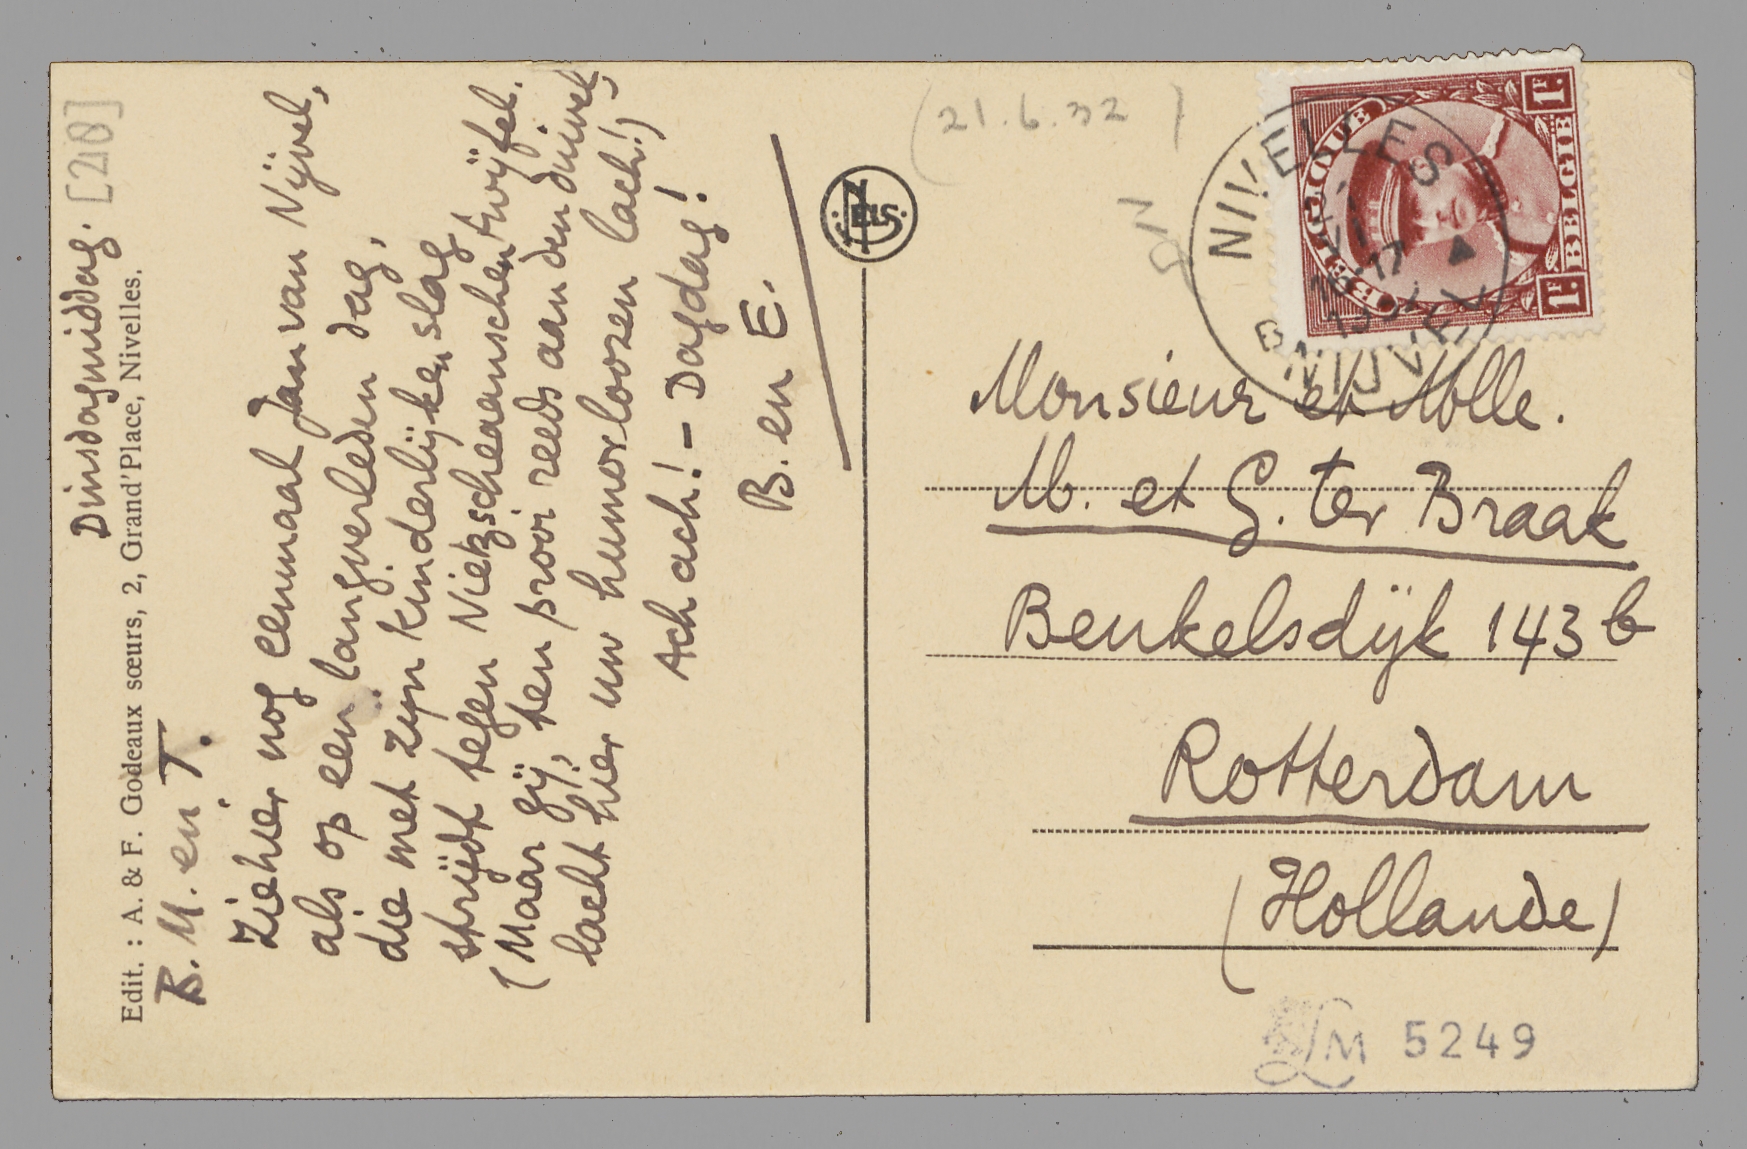 Dinsdagmiddag. [210]
Edit. : A. & F. Godeaux sœurs, 2, Grand'Place, Nivelles.
B. M. en T.
Ziehier nog eenmaal Jan van Nijvel,
als op een langverleden dag,
die met zijn kinderlijken slag
strijdt tegen Nietzscheaanschen twijfel.
(Maar gij, ten prooi reeds aan den duivel,
lacht hier uw humorloozen lach!)
Ach ach! - Dagdag!
B. en E.
(21.6.32)
NIVELLES
16-17
1932
NIJVEL
BELGIQUE
BELGIË
1F.
1F.
Monsieur et Mlle.
M. et G. ter Braak
Beukelsdijk 143 b
Rotterdam
(Hollande)
LM 5249